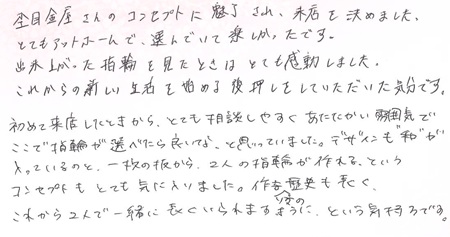 杢目金屋さんのコンセプトに魅了され、来店を決めました。
とてもアットホームで、選んでいて楽しかったです。
出来上がった指輪を見たときはとても感動しました。
これからの新しい生活を始める後押しをしていただいた気分です。
初めて来店したときから、とても相談しやすくあたたかい雰囲気で
ここで指輪が選べたら良いな、と思っていました。デザインも"和"が
入っているのと、一枚の板から、2人の指輪が作れる、という
コンセプトもとても気に入りました。作る歴史も長く、
これから2人で一緒に長くいられますように、という気持ちです。